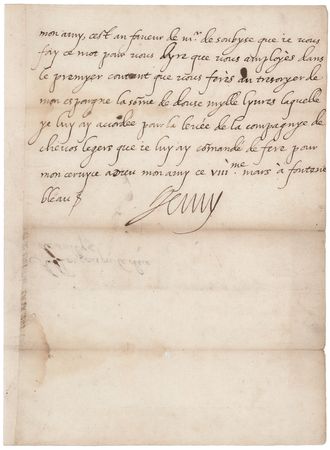 mon amy, cest an faveur de mr. de soubyse que ie vous
fay ce mot pour vous dyre que vous amployés dans
le premyer contant que vous ferés au tresoryer de
mon espargne la some de douse mylle lyvres laquelle
je luy ay accordee pour la levée de la compagnye de
chevos legers que ie luy ay comandé de fere pour
mon servyce adieu mon amy ce viii me. mars à fontene
bleau
Henry